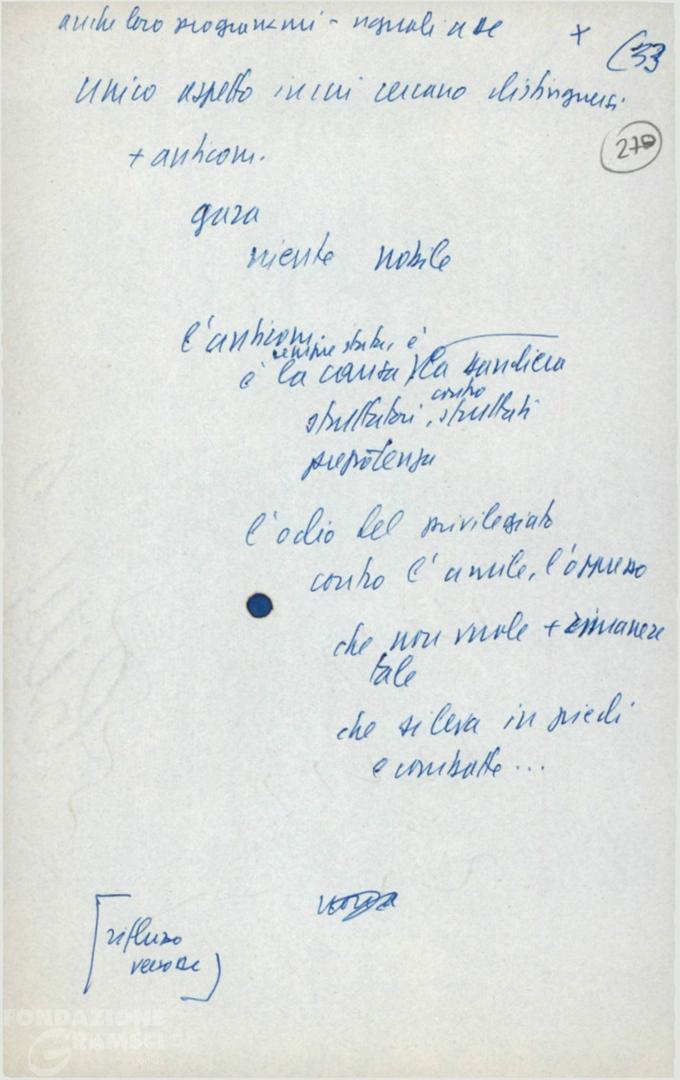 anche loro programmi - uguali a DC x (53
unico aspetto in cui cercano distinguersi
270
+ anticom.
gara
niente nobile
l'anticom.
sempre stata, è
è la causa, la bandiera
contro
sfruttatori, sfruttati
prepotenza
l'odio del privilegiato
contro l'umile, l'oppresso
che non vuole + rimanere
tale
che si leva in piedi
e combatte...
riflusso
verso DC
FONDAZIONE
GRAMSCI